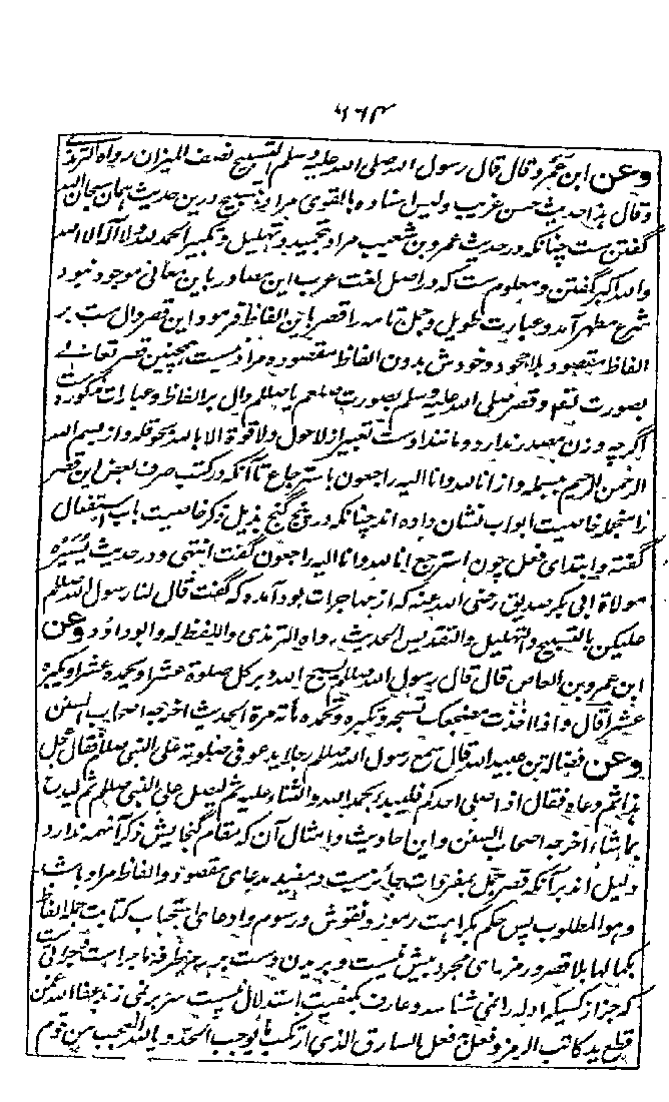 ۶۶۳
وعن ابن عمرو قال قال رسول الله صلی الله علیه وسلم التسبیح نصف المیزان رواه الترمذی
وقال هذا حدیث حسن غریب ولیس اسناده بالقوی مراد به تسبیح درین حدیث همان سبحان الله
گفتن ست چنانکه در حدیث عمرو بن شعیب مراد تحمید وتهلیل وتکبیر الحمد لله ولا اله الا الله
والله اکبر گفتن ومعلوم ست که در اصل لغت عرب این مصادر باین معانی موجود نبود
شرع مطهر آمد وعبارت طویل وجمل تامه را قصر باین الفاظ فرمود این قصر دال ست بر
الفاظ مقصود بلا تجرد وخودش بدون الفاظ مقصوره مراد نیست همچنین قصر تعالی
بصورت تع وقصر صلی الله علیه وسلم بصورت صلعم یا صللم دال بر الفاظ وعبارات مذکوره ست
اگرچه وزن مصدر ندارد ومانند اوست تعبیر از لاحول ولا قوة الا بالله بحوقله واز بسم الله
الرحمن الرحیم ببسمله واز انا لله وانا الیه راجعون باسترجاع تا آنکه در کتب صرف بعض این قصر
را منجمله خاصیت ابواب نشان داده اند چنانکه در پنج گنج بذیل ذکر خاصیت باب استفعال
گفته وابتدای فعل چون استرجع انا لله وانا الیه راجعون گفت انتهی ودر حدیث یسیره
مولاة ابی بکر صدیق رضی الله عنه که از مهاجرات بود آمده که گفت قال لنا رسول الله صللم
علیکن بالتسبیح والتهلیل والتقدیس الحدیث رواه الترمذی واللفظ له وابو داود وعن
ابن عمرو بن العاص قال قال رسول الله صللم یسبح الله دبر کل صلوة عشرا ویحمده عشرا ویکبره
عشرا قال واذا اخذت مضجعک تسبحه وتکبره وتحمده مائة مرة الحدیث اخرجه اصحاب السنن
وعن فضالة بن عبید الله قال سمع رسول الله صللم رجلا یدعو فی صلوته علی النبی صللم فقال عجل
هذا ثم دعاه فقال اذا صلی احدکم فلیبدأ بحمد الله والثناء علیه ثم لیصل علی النبی صللم ثم لیدع
بما شاء اخرجه اصحاب السنن واین احادیث وامثال آن که مقام گنجایش ذکر آنهمه ندارد
دلیل اند بر آنکه قصر جمل بمفردات جائزست ومفید مدعای مقصود والفاظ مراد باشد
وهو المطلوب پس حکم بکراهت رموز ونقوش ورسوم وادعای استحباب کتابت جمله الفاظ
بکمالها بلا قصر ورمز بیش نیست وبریدن دست طرفه ماجرا ست
که جز از کسیکه ادله را نمی شناسد وعارف بکیفیت استدلال نیست سر بر نمی زند عفا الله عمن
قطع ید کاتب الرمز وفعل فعل السارق الذی ارتکب ما یوجب الحد ویا لله العجب من قوم